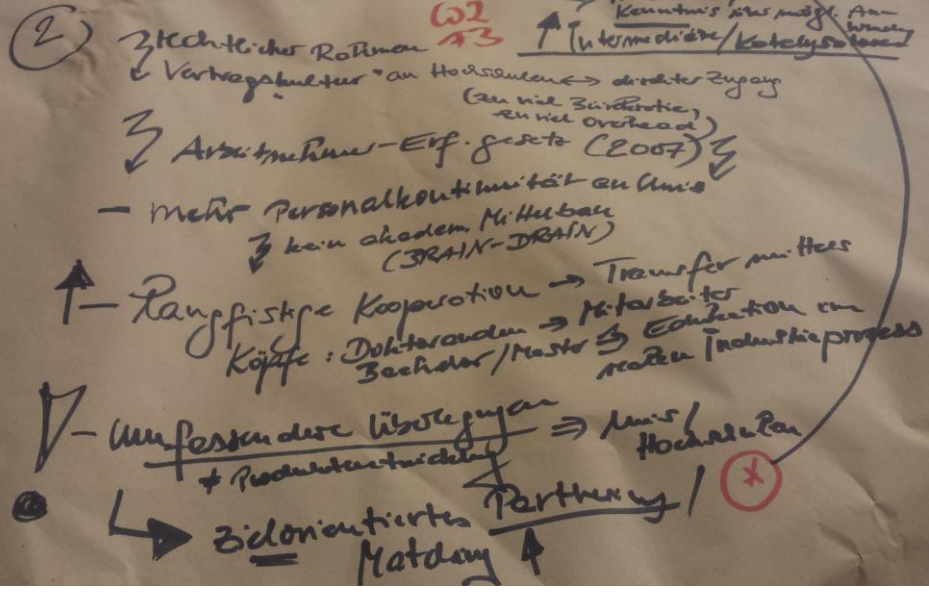 Kenntnis über mögl. An-
wendg
W2
A3
↑ Intermediäre/Katalysatoren
② rechtlicher Rahmen
"Vertragskultur" an Hochschulen ↔ direkter Zugang
(zu viel Bürokratie,
zu viel Overhead)
Arbeitnehmer-Erf.gesetz (2007)
– mehr Personalkontinuität an Unis
kein akadem. Mittelbau
(BRAIN-DRAIN)
↑ – Langfristige Kooperation → Transfer mittels
Köpfe: Doktoranden → Mitarbeiter
Bachelor/Master ⇒ Education im
realen Industrieprozess
– umfassendere Überlegungen ⇒ Unis/
Hochschulen
≠ Produktentwicklung
zielorientiertes Partnering / *
Matching ↑